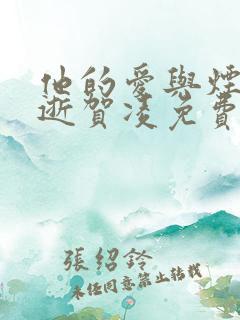 他的愛與煙
逝賀凌免費
張紹鈴
未經同意禁止轉載